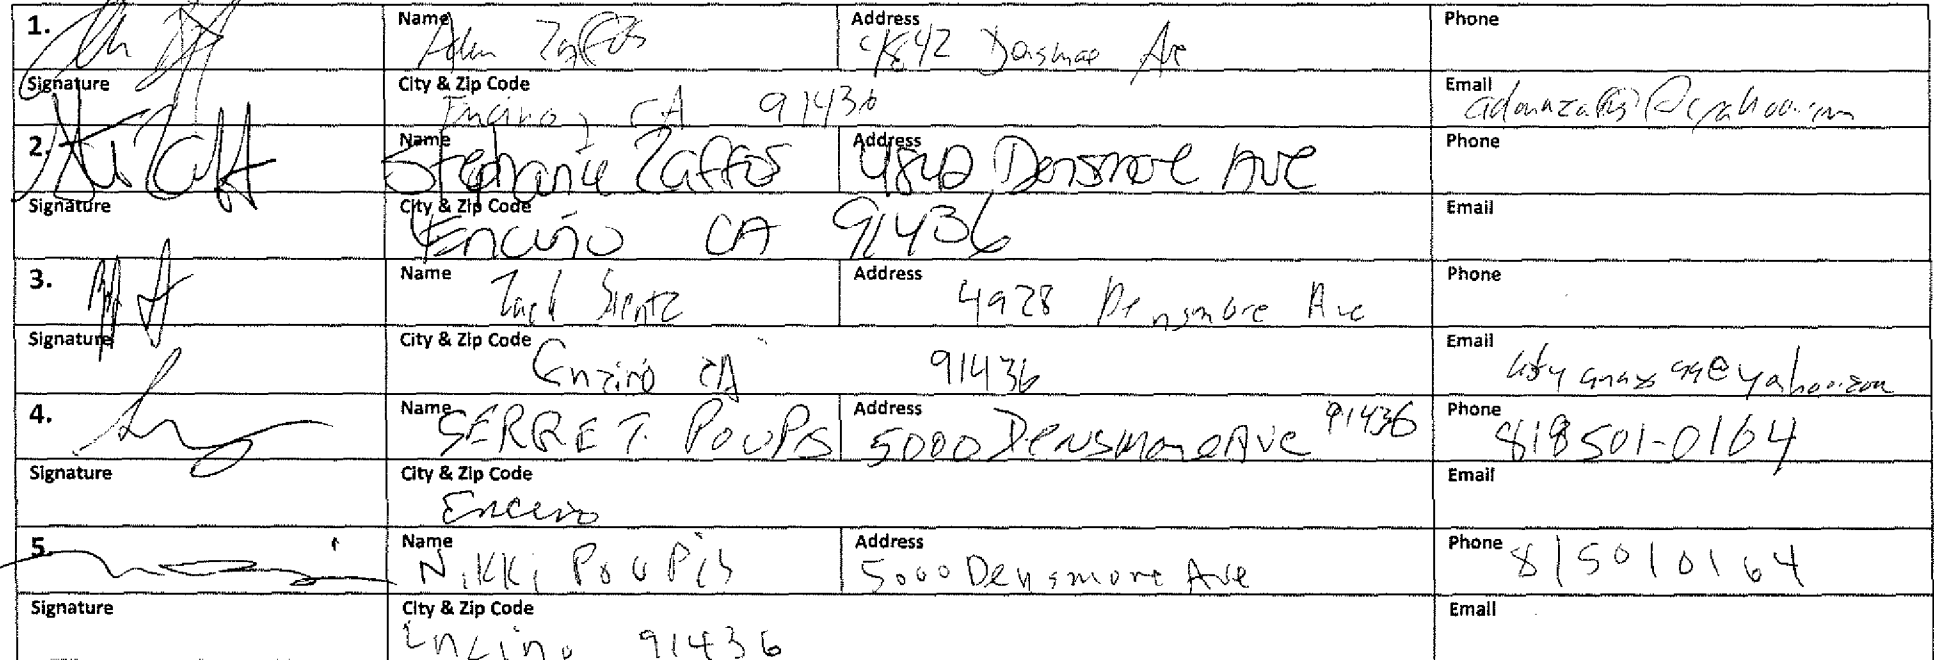 1. Name Adam Zaffos Address 4842 Densmore Ave Phone
Signature City & Zip Code Encino, CA 91436 Email
2. Name Stephanie Zaffos Address 4842 Densmore Ave Phone
Signature City & Zip Code Encino CA 91436 Email
3. Name Address 4928 Densmore Ave Phone
Signature City & Zip Code Encino CA 91436 Email
4. Name SERRE T. POUPIS Address 5000 Densmore Ave 91436 Phone 818 501-0164
Signature City & Zip Code Encino Email
5. Name Nikki Poupis Address 5000 Densmore Ave Phone 815010164
Signature City & Zip Code Encino 91436 Email